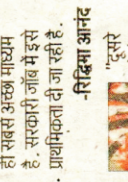 ही सबसे अच्छे माध्यम
है. सरकारी जॉब में इसे
प्राथमिकता दी जा रही है.
-रिद्धिमा आनंद
"दूसरे